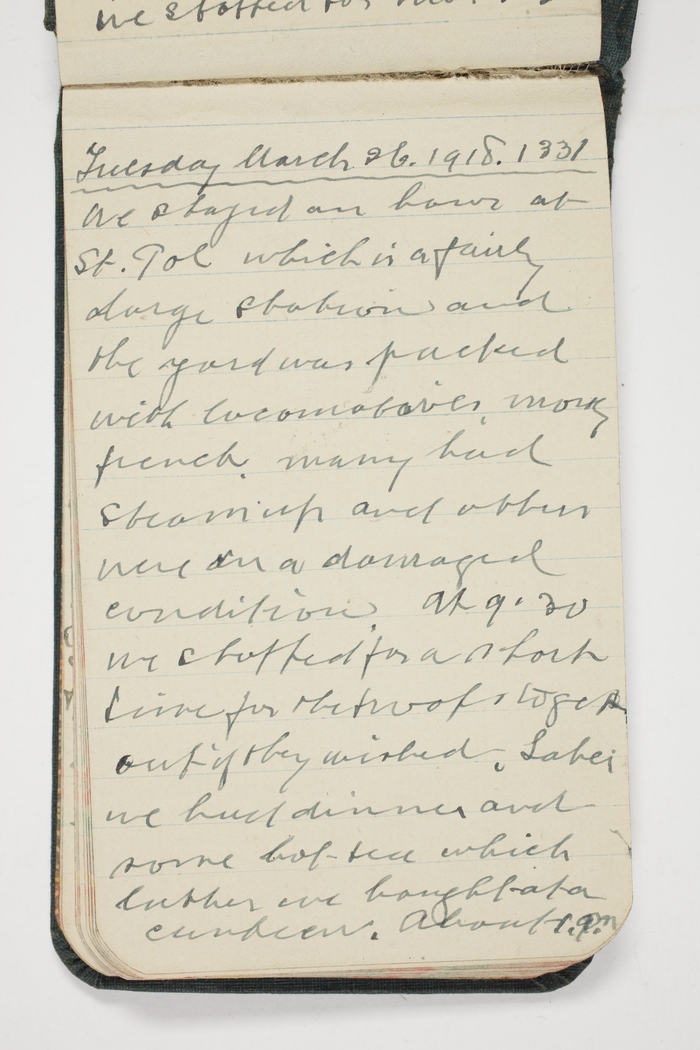 we stopped for
Tuesday March 26. 1918. 1331
We stayed an hour at
St. Pol which is a fairly
large station and
the yard was packed
with locomotives, mostly
french. many had
steam up and others
were in a damaged
condition. At 9.30
we stopped for a short
time for the troops to get
out if they wished. Later
we had dinner and
some hot tea which
luther we bought at a
canteen. About 1.pm